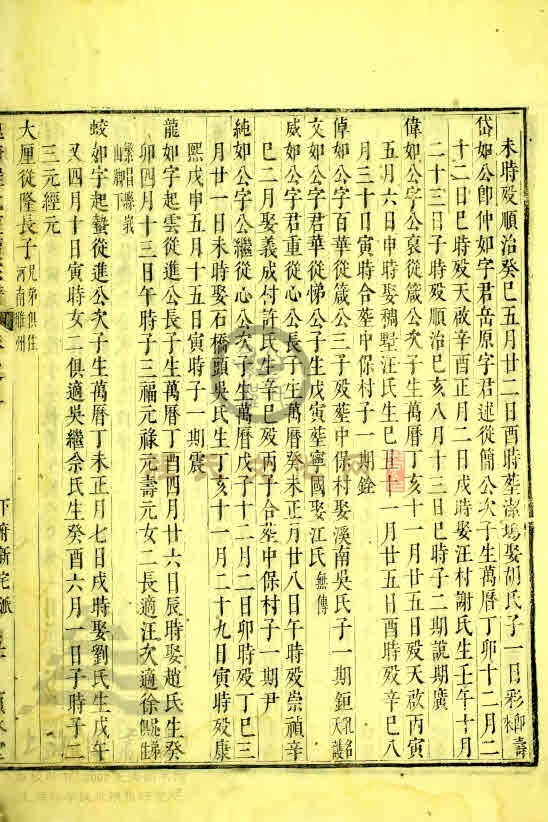 未時殁順治癸巳五月廿二日酉時塟潔塢娶胡氏子一日彩即壽
岱如公即仲如字君岳原字君述從簡公次子生萬曆丁卯十二月二
十二日巳時殁天啟辛酉正月二日戌時娶汪村謝氏生壬午十月
二十三日子時殁順治巳亥八月十三日巳時子二期說期廣
偉如公字公袞從箴公次子生萬曆丁亥十一月廿五日殁天啟丙寅
五月六日申時娶稠墅汪氏生巳丑十一月廿五日酉時殁辛巳八
月三十日寅時合塟中保村子一期銓
倬如公字百華從箴公三子殁塟長娶溪南吳氏子一期鉅
文如公字君華從悌公子生戊寅塟寧國娶汪氏無傳
威如公字君重從心公長子生萬曆癸未正月廿八日午時殁崇禎辛
巳二月娶義成村許氏生辛巳殁丙子合塟中保村子一期尹
純如公字公繼從心公次子生萬曆戊子十二月二日卯時殁丁巳三
月廿一日未時娶石橋頭吳氏生丁亥十一月二十九日寅時殁康
熙戊申五月十五日寅時子一期震
龍如字起雲從進公長子生萬曆丁酉四月廿六日辰時娶趙氏生癸
卯四月十三日午時子三福元祿元壽元女二長適汪次適徐
繁昌縣峩山腳下
蛟如字起蟄從進公次子生萬曆丁未正月七日戌時娶劉氏生戊午
又四月十日寅時女二俱適吳繼佘氏生癸酉六月一日子時子二
三元經元
大厘從隆長子兄弟俱住河南睢州
下府新宅派